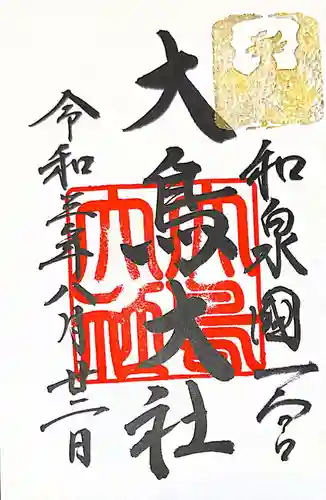 和泉國一宮
大鳥大社
令和三年八月廿二日
大鳥大社